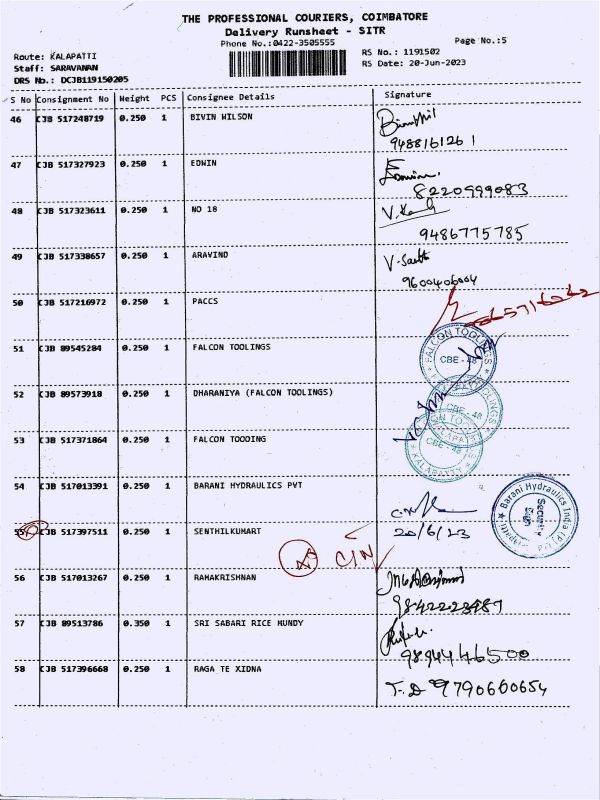 THE PROFESSIONAL COURIERS, COIMBATORE
Delivery Runsheet - SITR
Phone No.:0422-3505555
Page No.:5
Route: KALAPATTI
RS No.: 1191502
Staff: SARAVANAN
RS Date: 20-Jun-2023
DRS No.: DCJB119150205
S No Consignment No Weight PCS Consignee Details Signature
46 CJB 517248719 0.250 1 BIVIN WILSON
9488161261
47 CJB 517327923 0.250 1 EDWIN
8220999083
48 CJB 517323611 0.250 1 NO 18
9486775785
49 CJB 517338657 0.250 1 ARAVIND
9600406004
50 CJB 517216972 0.250 1 PACCS
51 CJB 89545284 0.250 1 FALCON TOOLINGS
FALCON TOOLINGS
CBE - 48
52 CJB 89573918 0.250 1 DHARANIYA (FALCON TOOLINGS)
CBE - 48
KALAPATTY
53 CJB 517371864 0.250 1 FALCON TOODING
CBE - 48
KALAPATTY
54 CJB 517013391 0.250 1 BARANI HYDRAULICS PVT
Barani Hydraulics India (P)
Security
Sign
20/6/23
55 CJB 517397511 0.250 1 SENTHILKUMART
56 CJB 517013267 0.250 1 RAMAKRISHNAN
9842223487
57 CJB 89513786 0.350 1 SRI SABARI RICE MUNDY
9894446500
58 CJB 517396668 0.250 1 RAGA TE XIDNA
T.D 9790600654